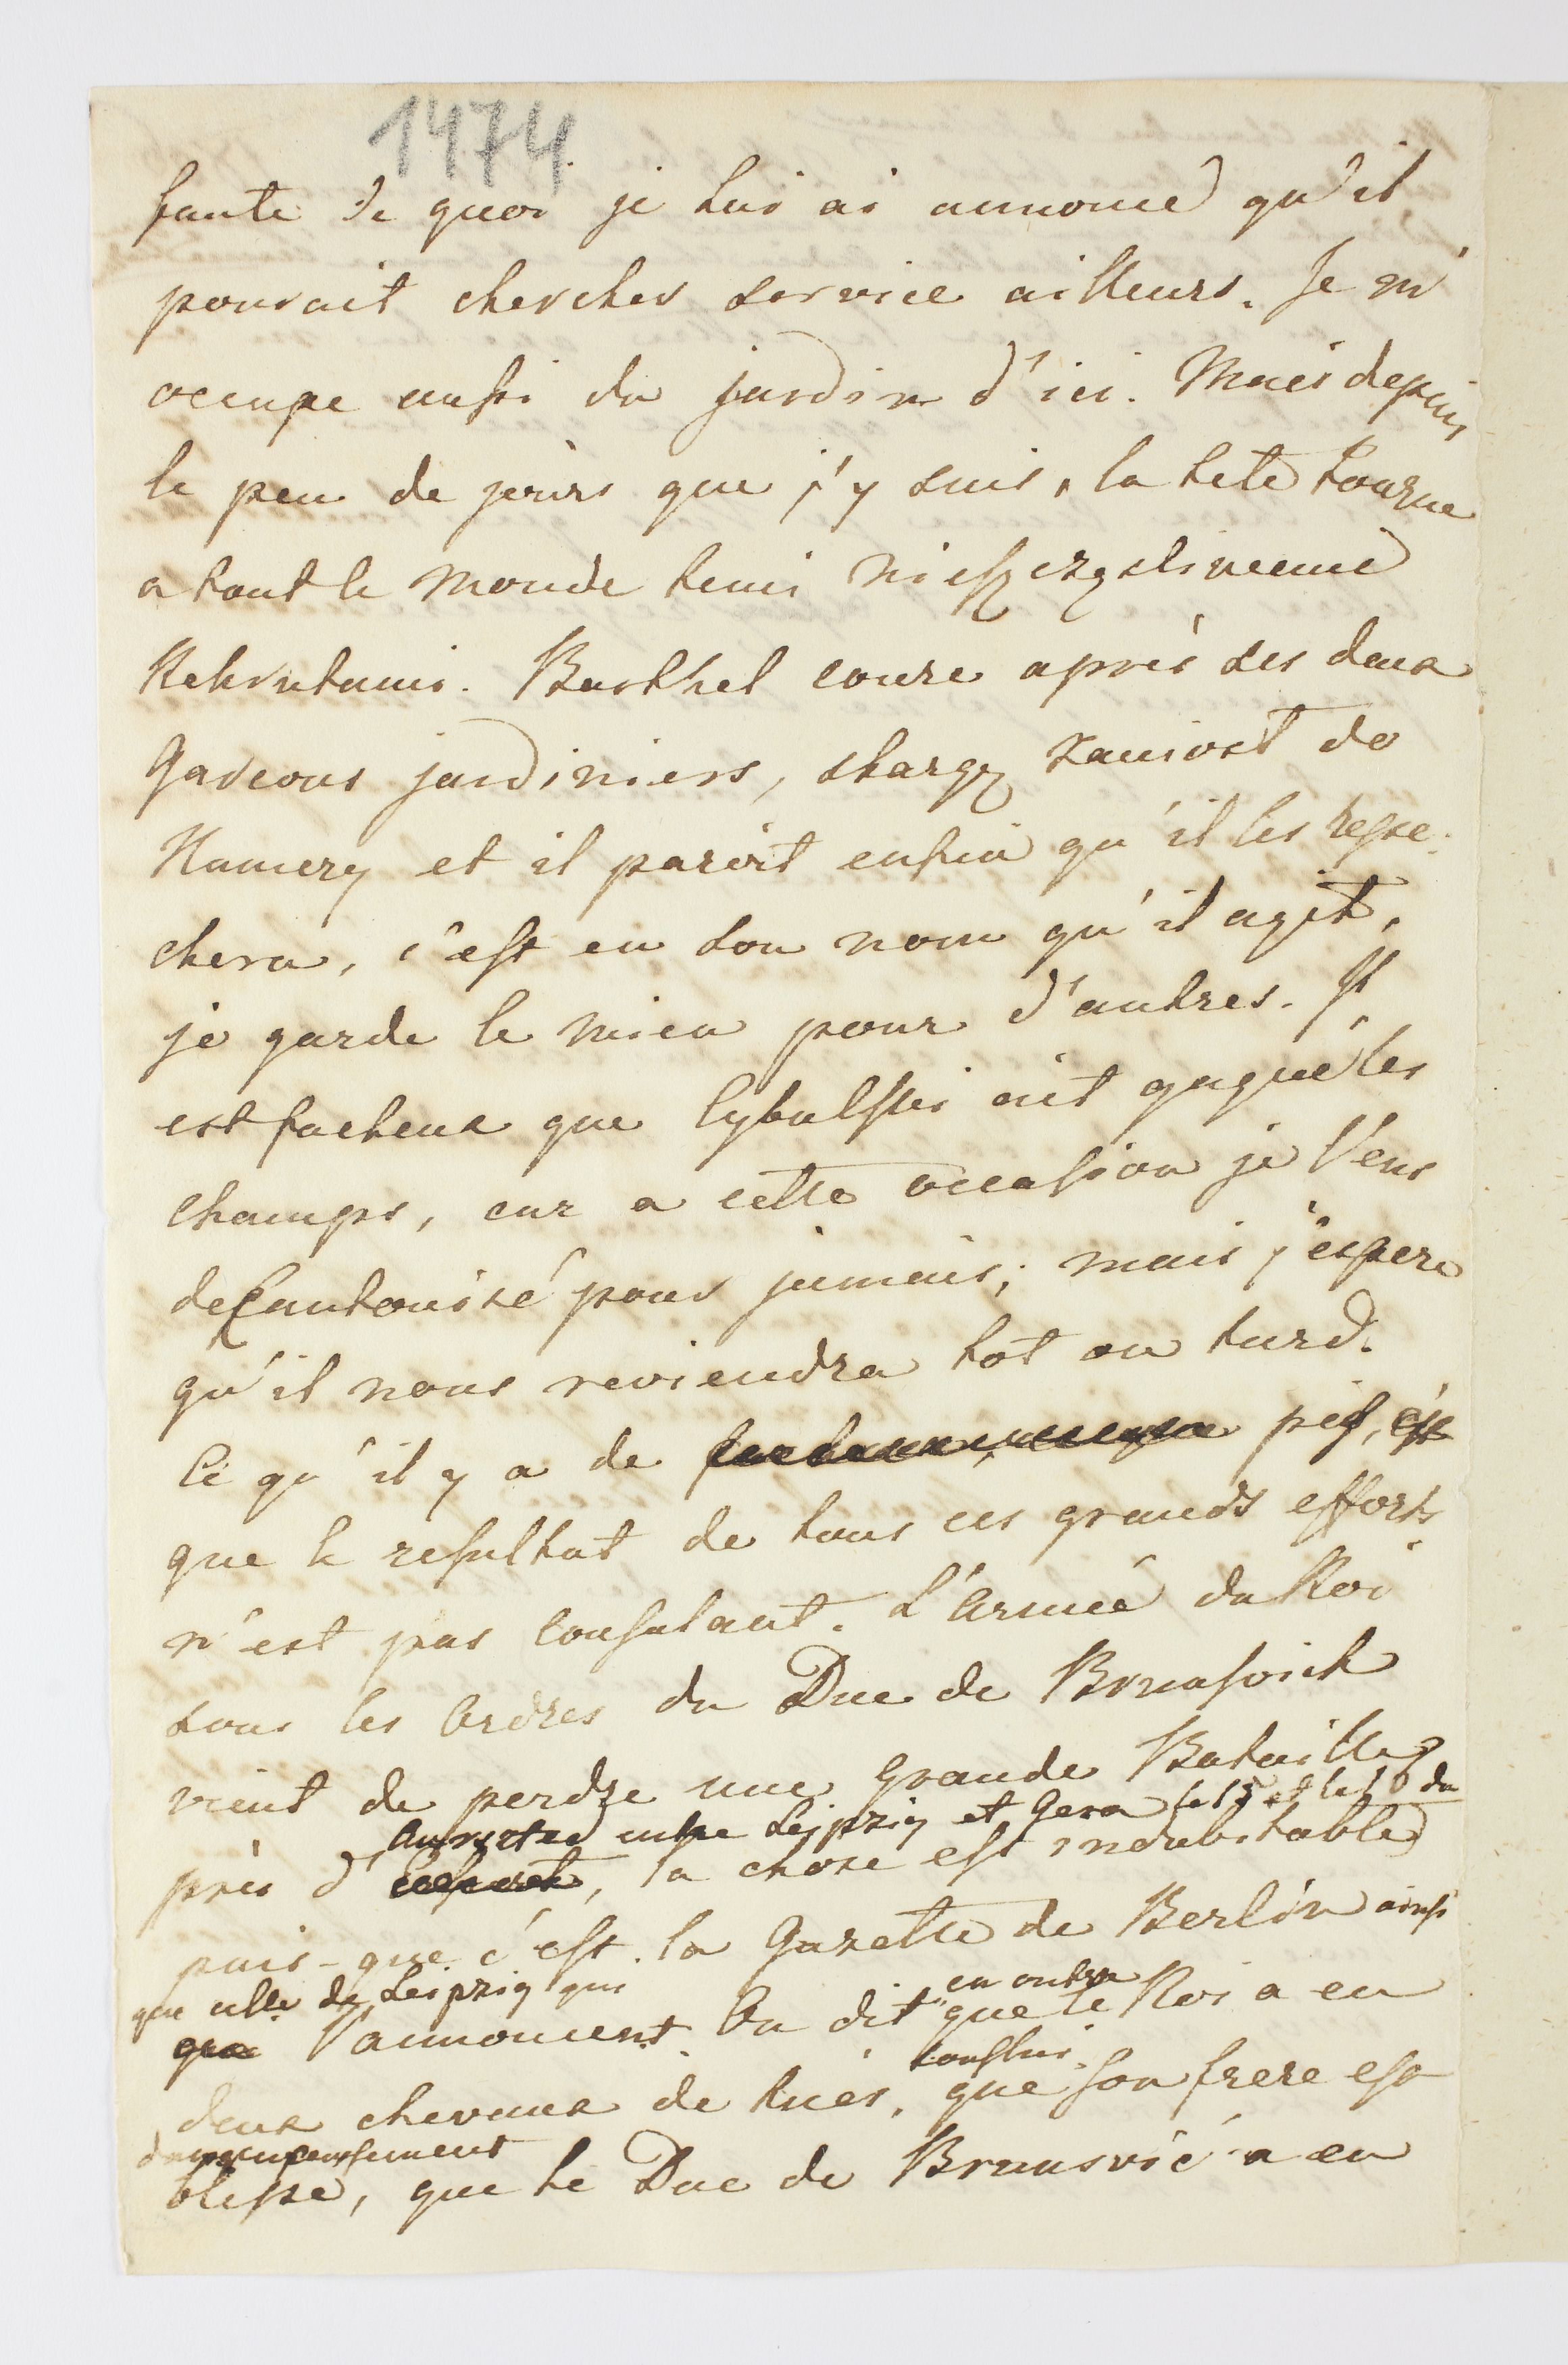 1474
faute de quoi je lui ai annoncé qu'il
pouroit chercher service ailleurs. Je m'
occupe aussi du jardin d'ici. Mais depuis
le peu de jours que j'y suis, la tete tourne
a tout le monde temi nieszczęsliwemi
Rekrutami. Barthel coure après ses deux
Garçons jardiniers,
et il paroit enfin qu'il les repe-
chera, c'est en son nom qu'il agit,
je garde le mien pour d'autres. Il
est facheux que Cybulski ait gagné les
champs, car a cette occasion je l'eus
decantonisé pour jamais; mais j'espere
qu'il nous reviendra tot ou tard.
Ce qu'il y a de pis, c'est
que le resultat de tous ces grands efforts
n'est pas consolant. L'Armée du Roi
sous les Ordres du Duc de Brunsvick
vient de perdre une Grande Bataille
Auerstæd entre Leipzig et Gera le 15 et le 16 du
près d' , la chose est indubitable
puis-que c'est la Gazette de Berlin ainsi
que celle de Leipzig qui
l'annoncent. On dit en outre que le Roi a eu
deux chevaux de tués, que son frere est
dangereusement
blessé, que le Duc de Brunsvic a eu